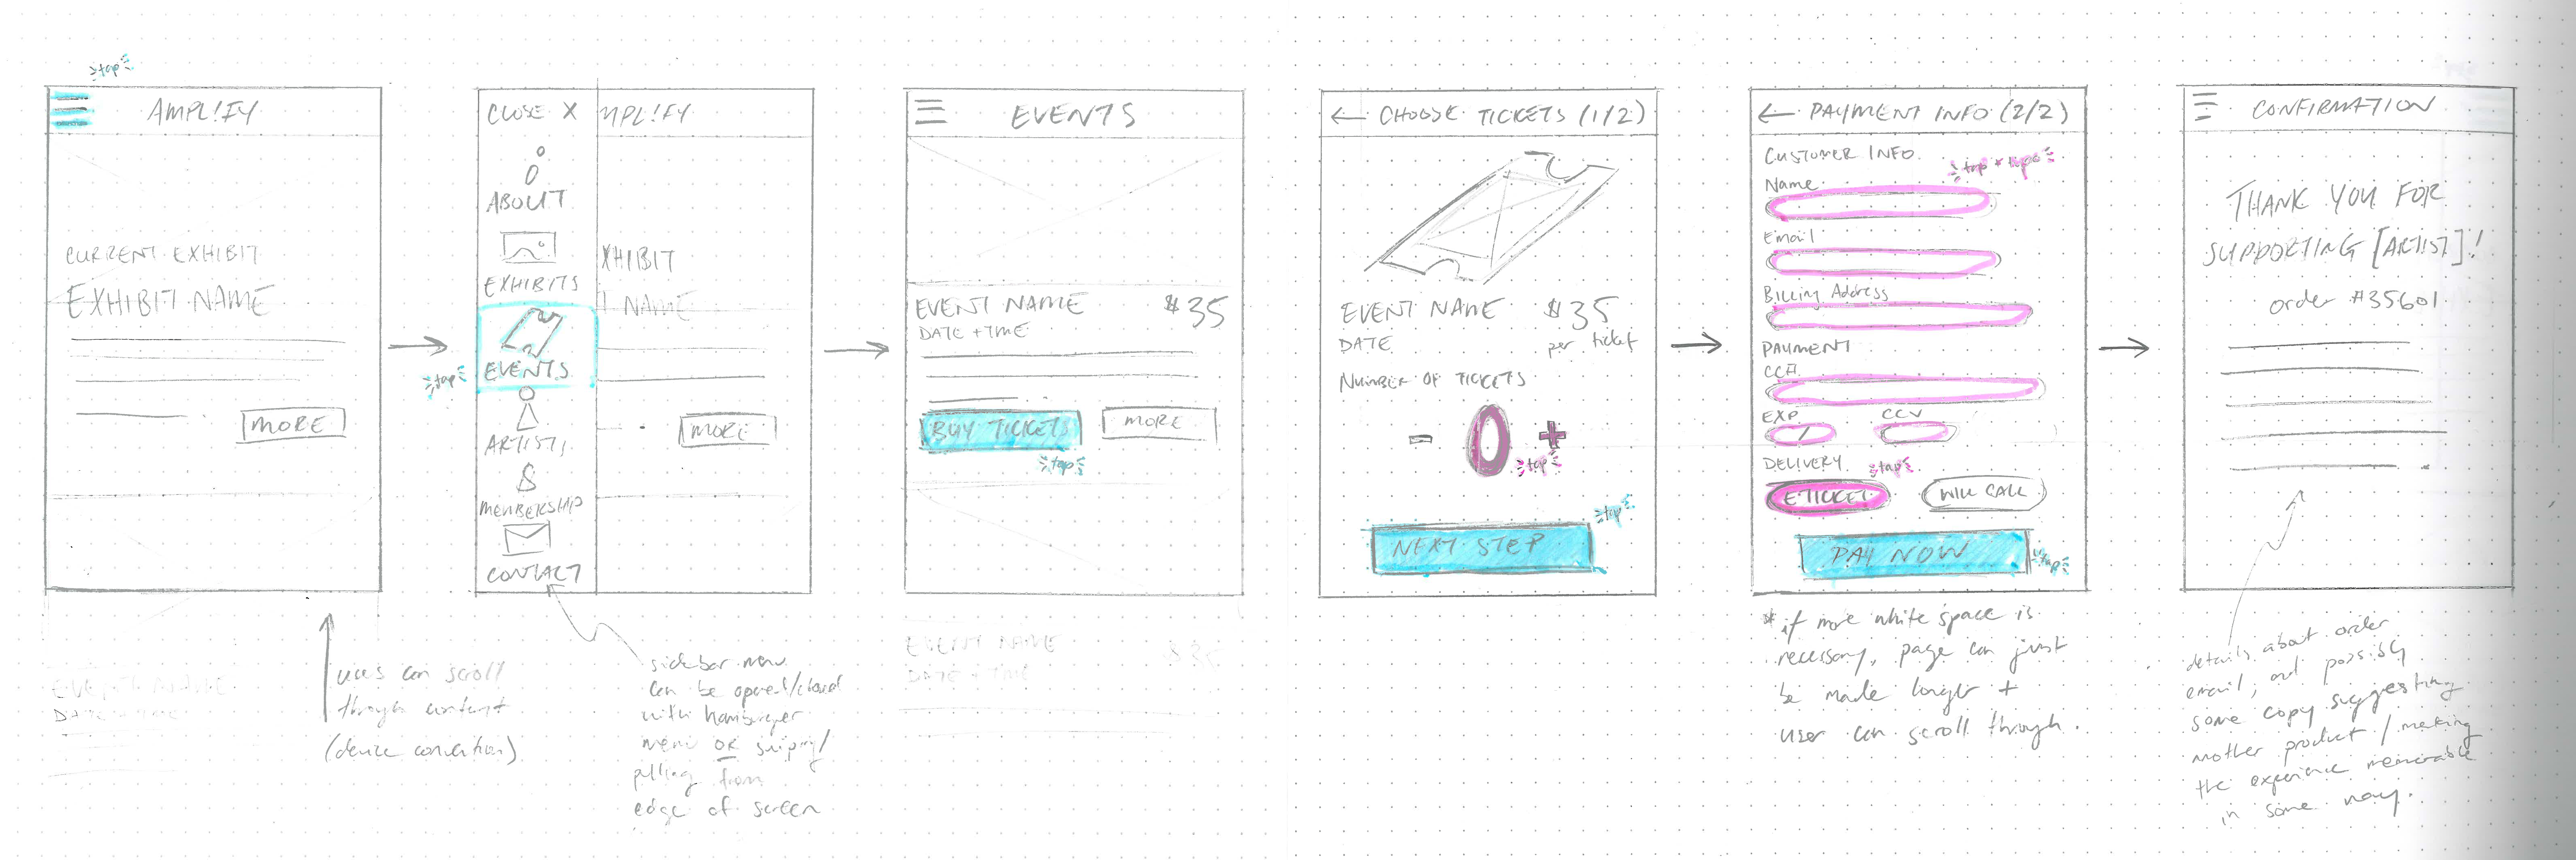 tap
AMPL!FY
CURRENT EXHIBIT
EXHIBIT NAME
MORE
users can scroll
through content
(device convention)
EVENT NAME
DATE + TIME
CLOSE X
MPL!FY
ABOUT
EXHIBITS
XHIBIT
T NAME
EVENTS
tap
ARTISTS
MEMBERSHIP
CONTACT
MORE
sidebar menu
can be opened/closed
with hamburger
menu OR swiping/
pulling from
edge of screen
EVENTS
EVENT NAME $35
DATE + TIME
BUY TICKETS
MORE
tap
EVENT NAME
DATE + TIME
$35
← CHOOSE TICKETS (1/2)
EVENT NAME $35
DATE per ticket
NUMBER OF TICKETS
- 0 +
tap
tap
NEXT STEP
← PAYMENT INFO (2/2)
CUSTOMER INFO
Name
Email
Billing Address
PAYMENT
CC#
EXP. CCV
/
DELIVERY
tap
E-TICKET
WILL CALL
PAY NOW
tap
* if more white space is
necessary, page can just
be made longer +
user can scroll through.
CONFIRMATION
THANK YOU FOR
SUPPORTING [ARTIST]!
order #35601
details about order
email, and possibly
some copy suggesting
another product / making
the experience memorable
in some way.